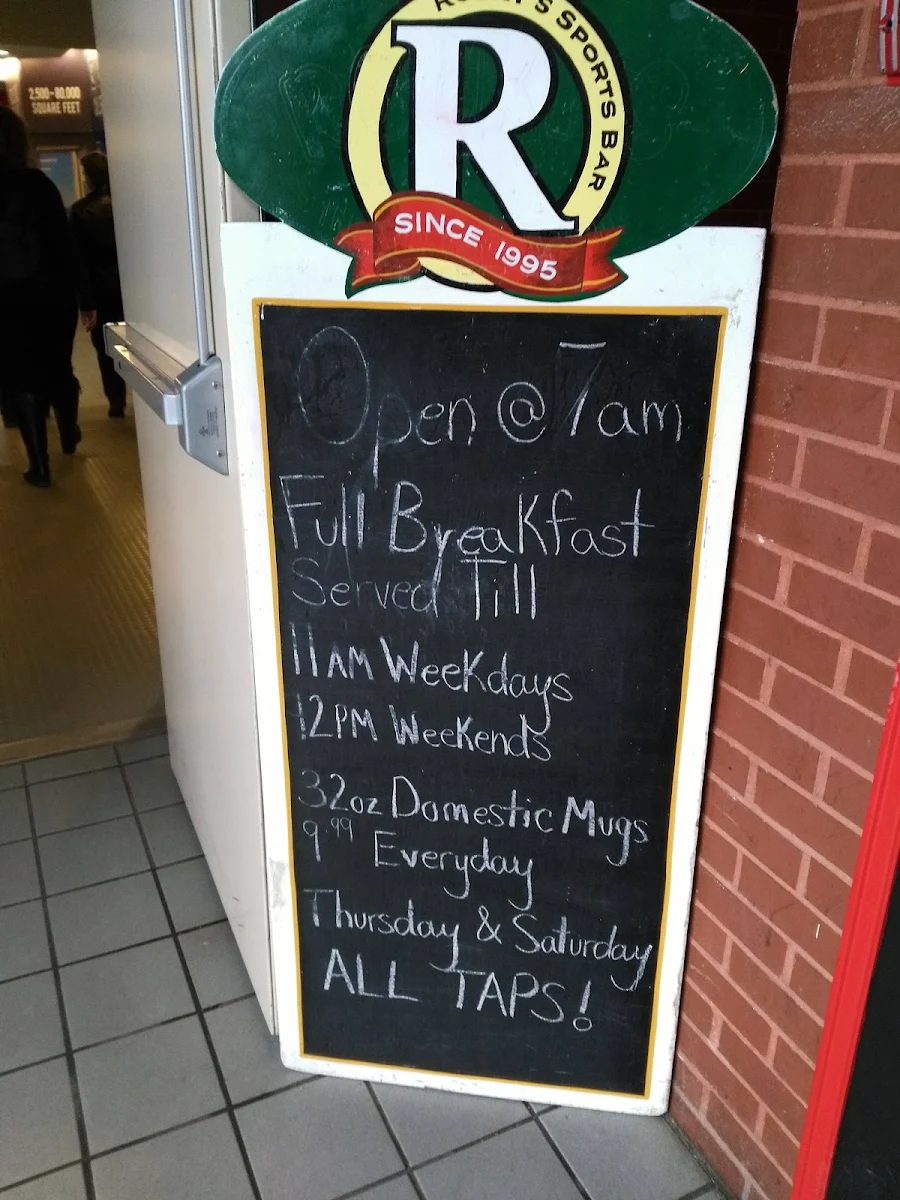 SPORTS BAR
R
SINCE 1995
Open @ 7am
Full Breakfast
Served Till
11AM Weekdays
12PM Weekends
32oz Domestic Mugs
9.99 Everyday
Thursday & Saturday
ALL TAPS!
2,500-80,000
SQUARE FEET